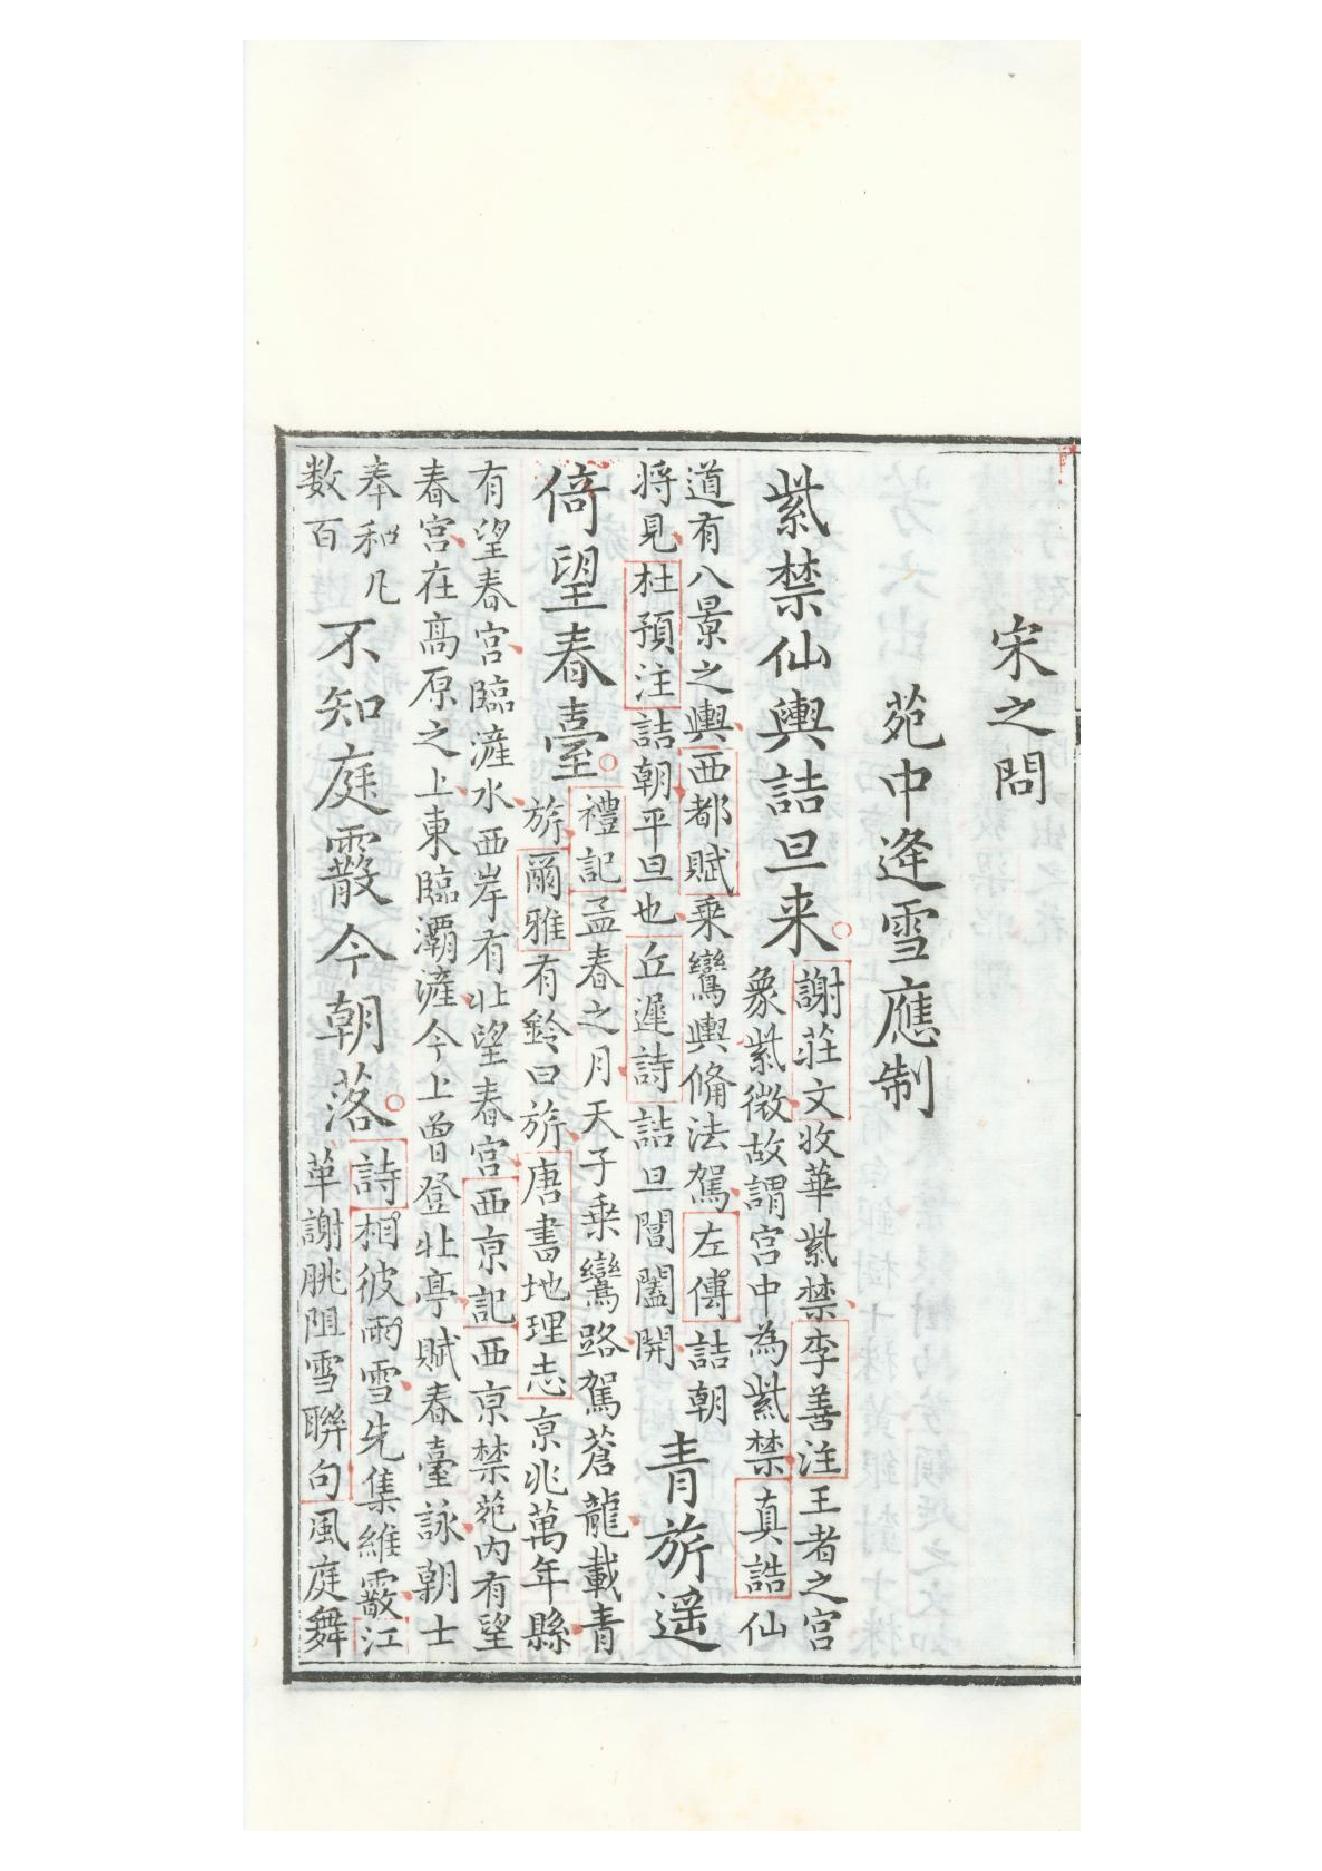 宋之問
苑中逢雪應制
紫禁仙輿詰旦来
謝莊文收華紫禁李善注王者之宮
象紫微故謂宮中為紫禁真誥仙
道有八景之輿西都賦乗鸞輿俻法駕左傳詰朝
将見杜預注詰朝平旦也丘遲詩詰旦閶闔開
青旂遥
倚望春臺
禮記孟春之月天子乗鸞路駕蒼龍載青
旂爾雅有鈴曰旂唐書地理志亰兆萬年縣
有望春宮臨滻水西岸有北望春宮西亰記西亰禁苑内有望
春宮在高原之上東臨灞滻今上曾登北亭賦春臺詠朝士
奉和凡
数百
不知庭霰今朝落
詩相彼雨雪先集維霰江
革謝朓阻雪聯句風庭舞